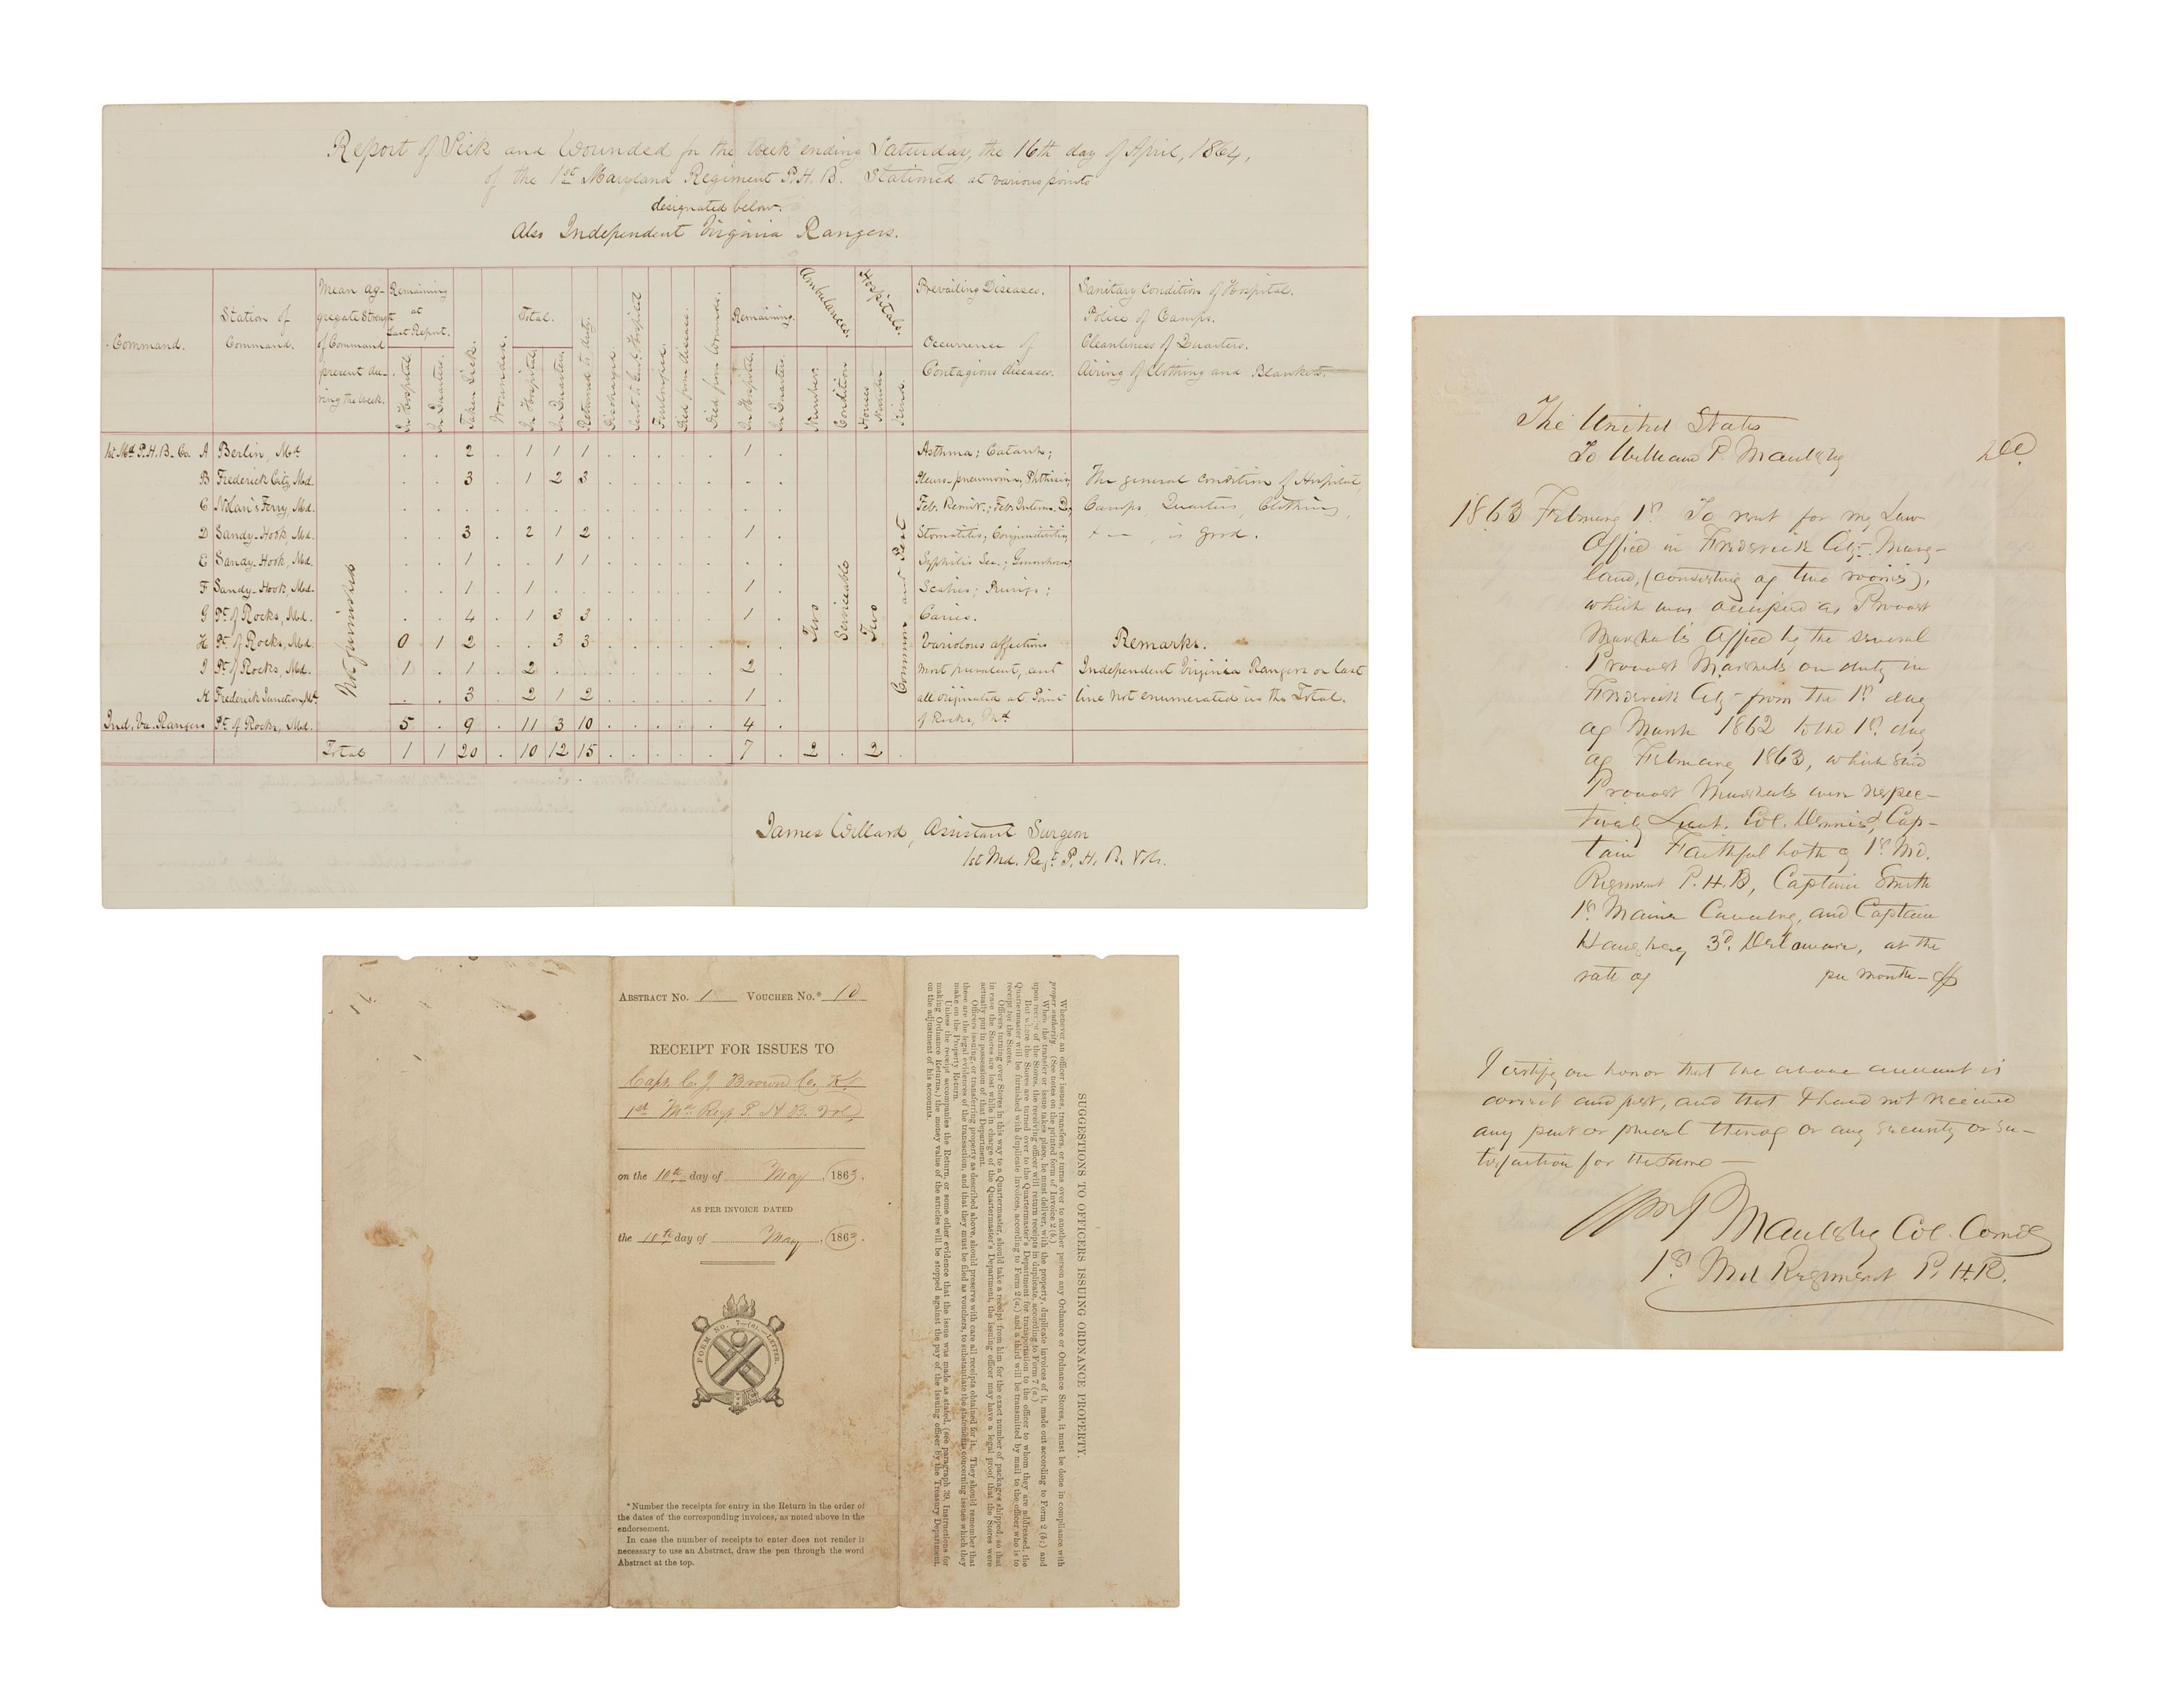 Report of Sick and Wounded for the Week ending Saturday, the 16th day of April, 1864,
of the 1st Maryland Regiment P. H. B. Stationed at various points
designated below.
Also Independent Virginia Rangers.
Command.
Station of Command.
Mean aggregate Strength of Command present during the week.
Remaining at Last Report.
In Hospital.
In Quarters.
Taken Sick.
Wounded.
Total.
In Hospital.
In Quarters.
Returned to duty.
Discharged.
Sent to Genl. Hospital
Furloughed.
Died from disease.
Died from Wounds.
Remaining.
In Hospital.
In Quarters.
Ambulances.
Number.
Condition
Hospitals.
Houses Number
Kind.
Prevailing Diseases.
Occurrence of
Contagious diseases.
Sanitary Condition of Hospital.
Police of Camps.
Cleanliness of Quarters.
Airing of Clothing and Blankets.
1st Md. P. H. B. Co. A Berlin, Md. . . 2 . 1 1 1 . . . . . 1 .
B Frederick City, Md. . . 3 . 1 2 3 . . . . . . .
C Nolan's Ferry, Md. . . . . . . . . . . . . . .
D Sandy-Hook, Md. . . 3 . 2 1 2 . . . . . 1 .
E Sandy-Hook, Md. . . 1 . . 1 1 . . . . . . .
F Sandy-Hook, Md. . . 1 . 1 . . . . . . . 1 .
G Pt. of Rocks, Md. . . 4 . 1 3 3 . . . . . 1 .
H Pt. of Rocks, Md. 0 1 2 . . 3 3 . . . . . . .
I Pt. of Rocks, Md. 1 . 1 . 2 . . . . . . . 2 .
K Frederick Junction, Md. . . 3 . 2 1 2 . . . . . 1 .
Ind. Va. Rangers Pt. of Rocks, Md. 5 . 9 . 11 3 10 . . . . . 4 .
Total 1 1 20 . 10 12 15 . . . . . 7 . 2 . 2 .
Not furnished
Two
Serviceable
Two
Common and Tent
Asthma; Catarrh;
Pleuro-pneumonia, Phthisis;
Feb. Remit.; Feb. Interm. Q;
Stomatitis; Conjunctivitis;
Syphilis Sec.; Gonorrhoea;
Scabies; Prurigo;
Caries.
Variolous affections
most prevalent, and
all originated at Point
of Rocks, Md.
The general condition of Hospital
Camps, Quarters, Clothing,
+ — , is good.
Remarks.
Independent Virginia Rangers on last
line not enumerated in the Total.
James Willard, Assistant Surgeon
1st Md. Regt. P. H. B. Vols.
The United States
To William P. Maulsby Dr.
1863 February 1st. To rent for my Law
Office in Frederick City Mary-
land, (consisting of two rooms),
which was occupied as Provost
Marshal's Office by the several
Provost Marshals on duty in
Frederick City from the 1st. day
of March 1862 to the 1st. day
of February 1863, which said
Provost Marshals were respec-
tively Lieut. Col. Dennis, Cap-
tain Faithful both of 1st. Md.
Regiment P. H. B, Captain Smith
1st. Maine Cavalry, and Captain
Haughey 3d. Delaware, at the
rate of per month—
I certify on honor that the above account is
correct and just, and that I have not received
any part or parcel thereof or any security or sa-
tisfaction for the same—
Wm P Maulsby Col. Comdg
1st. Md Regiment P. H. B.
ABSTRACT NO. 1 VOUCHER NO.* 10
RECEIPT FOR ISSUES TO
Capt. C. J. Brown Co. K
1st Md. Regt P H B. Vols
on the 10th day of May, 1863.
AS PER INVOICE DATED
the 10th day of May, 1863.
FORM NO. 7—(a).—LETTER.
*Number the receipts for entry in the Return in the order of
the dates of the corresponding invoices, as noted above in the
endorsement.
In case the number of receipts to enter does not render it
necessary to use an Abstract, draw the pen through the word
Abstract at the top.
SUGGESTIONS TO OFFICERS ISSUING ORDNANCE PROPERTY.
Whenever an officer issues, transfers, or turns over to another person any Ordnance or Ordnance Stores, it must be done in compliance with
proper authority. (See notes on the printed form of Invoice 2 (b).)
When the transfer or issue takes place, he must deliver, with the property, duplicate invoices of it, made out according to Form 2 (b;) and
upon receipt of the Stores, the receiving officer will return receipts in duplicate, according to Form 7 (a.)
But where the Stores are turned over to the Quartermaster's Department for transportation to the officer to whom they are addressed, the
Quartermaster will be furnished with duplicate invoices, according to Form 2 (a.) and a third will be transmitted by mail to the officer who is to
receipt for the Stores.
Officers turning over Stores in this way to a Quartermaster, should take a receipt from him for the exact number of packages shipped, so that
in case the Stores are lost while in charge of the Quartermaster's Department, the issuing officer may have a legal proof that the Stores were
actually put in possession of that Department.
Officers issuing, or transferring property as described above, should preserve with care all receipts obtained for it. They should remember that
these are the legal evidences of the transaction, and that they must be filed as vouchers, to substantiate the statements concerning issues which they
make on the Property Return.
Unless the receipt accompanies the Return, or some other evidence that the issue was made as stated, (see paragraph 39, Instructions for
making Ordnance Returns,) the money value of the articles will be stopped against the pay of the issuing officer by the Treasury Department,
on the adjustment of his accounts.